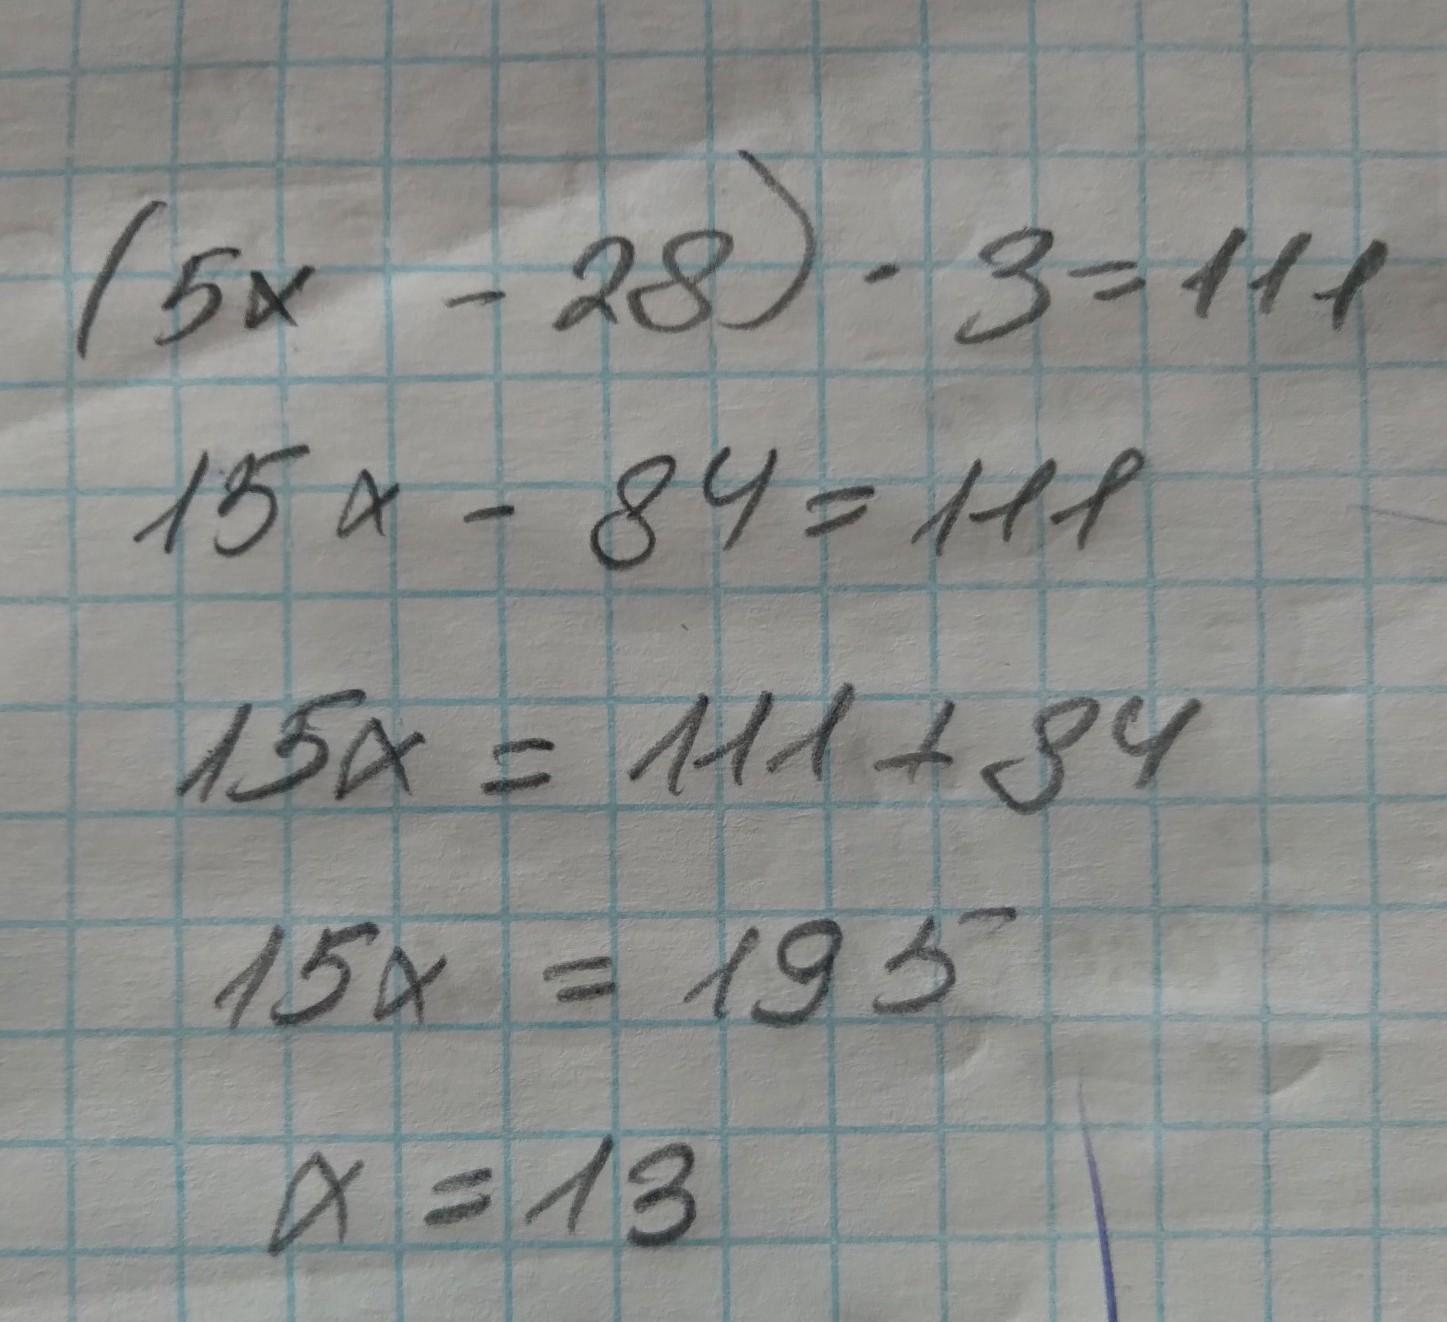 (5x - 28) · 3 = 111
15x - 84 = 111
15x = 111 + 84
15x = 195
x = 13